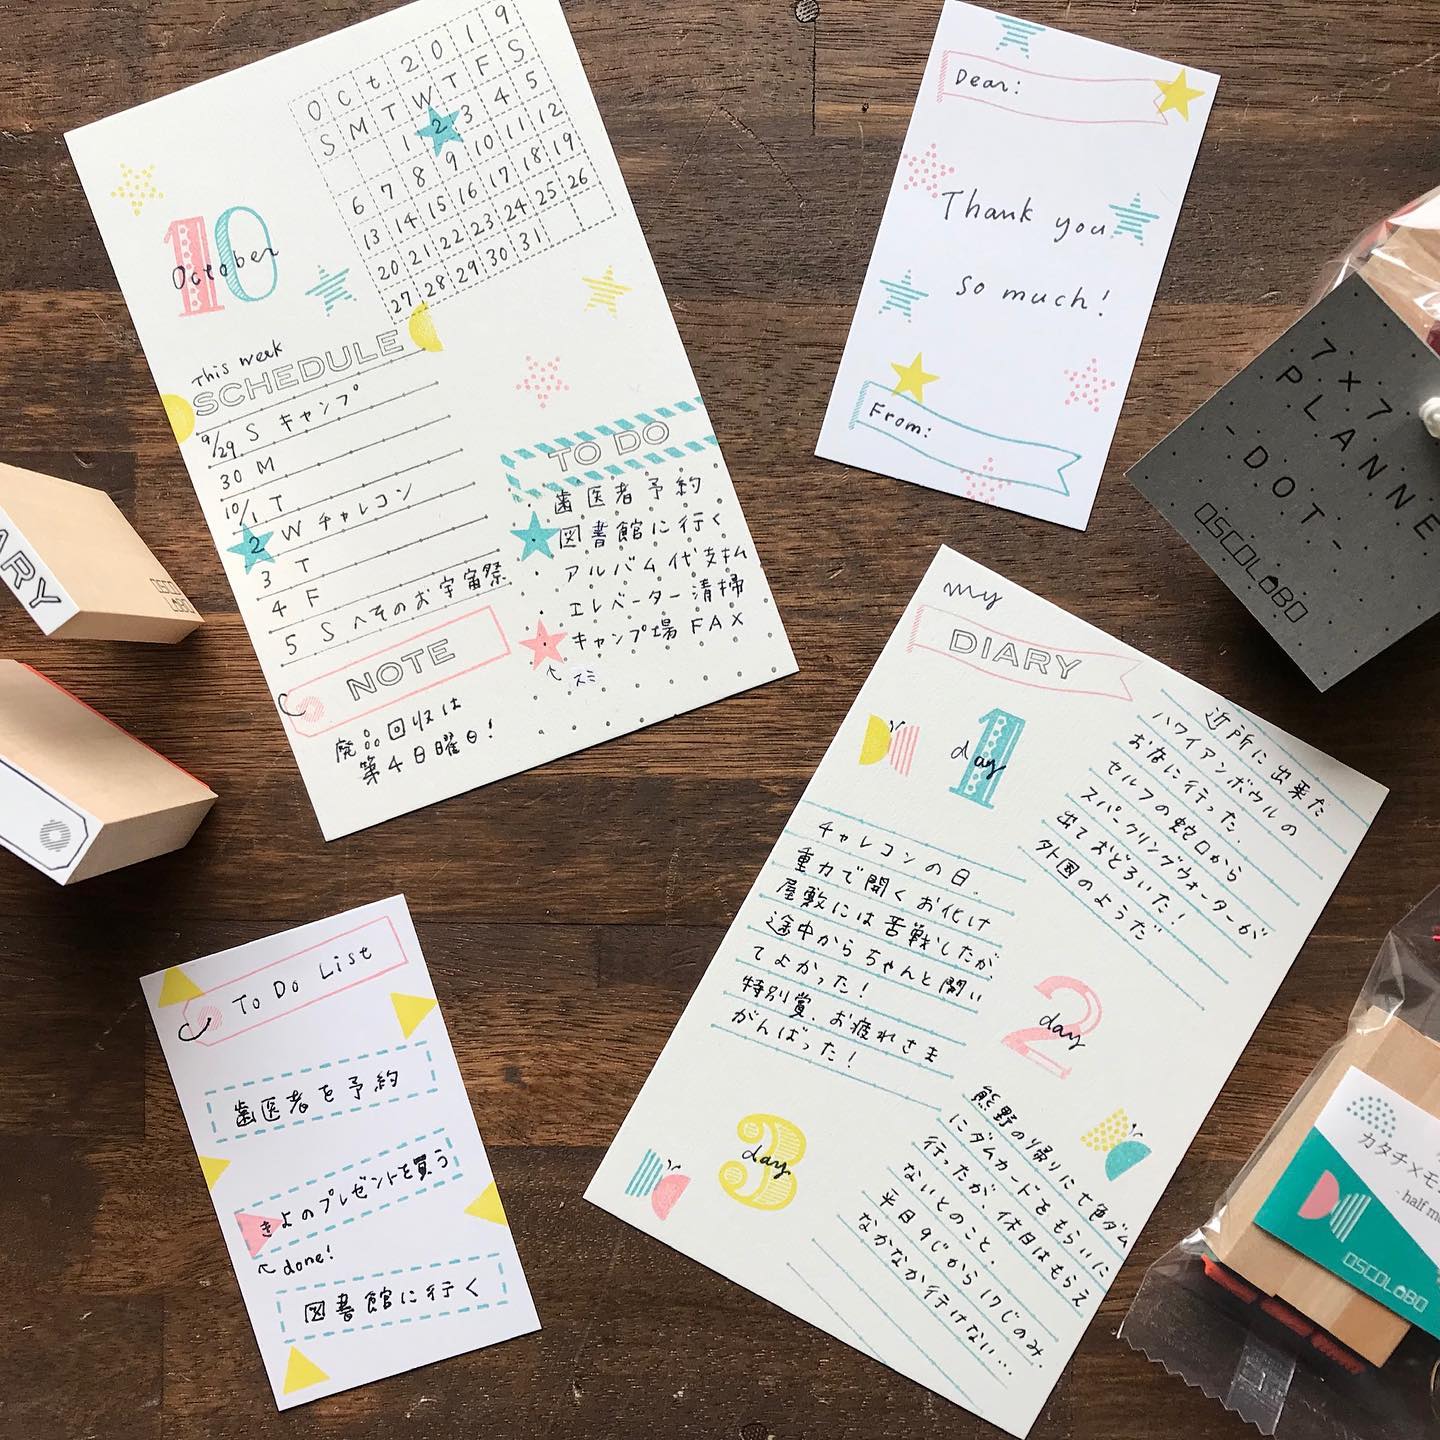 Oct 2019
S M T W T F S
1 2 3 4 5
6 7 8 9 10 11 12
13 14 15 16 17 18 19
20 21 22 23 24 25 26
27 28 29 30 31
10
October
This week
SCHEDULE
9/29 S キャンプ
30 M
10/1 T
2 W チャレコン
3 T
4 F
5 S へそのお宇宙祭
TO DO
歯医者予約
図書館に行く
アルバム代支払
エレベーター清掃
キャンプ場 FAX
スミ
NOTE
廃品回収は
第4日曜日!
Dear:
Thank you
so much!
From:
7×7
PLANNE
-DOT-
OSCOLOBO
ARY
OSCO
LOBO
my
DIARY
1
day
近所に出来た
ハワイアンボウルの
お店に行った.
セルフの蛇口から
スパークリングウォーターが
出ておどろいた!
外国のようだ
チャレコンの日.
重力で開くお化け
屋敷には苦戦したが、
途中からちゃんと開い
てよかった!
特別賞、お疲れさま
がんばった!
2
day
熊野の帰りに七色ダム
にダムカードをもらいに
行ったが、休日はもらえ
ないとのこと.
平日9じから17じのみ.
なかなか行けない…
3
day
To Do List
歯医者を予約
きよのプレゼントを買う
done!
図書館に行く
カタチ×モ
- half m
OSCOLOBO